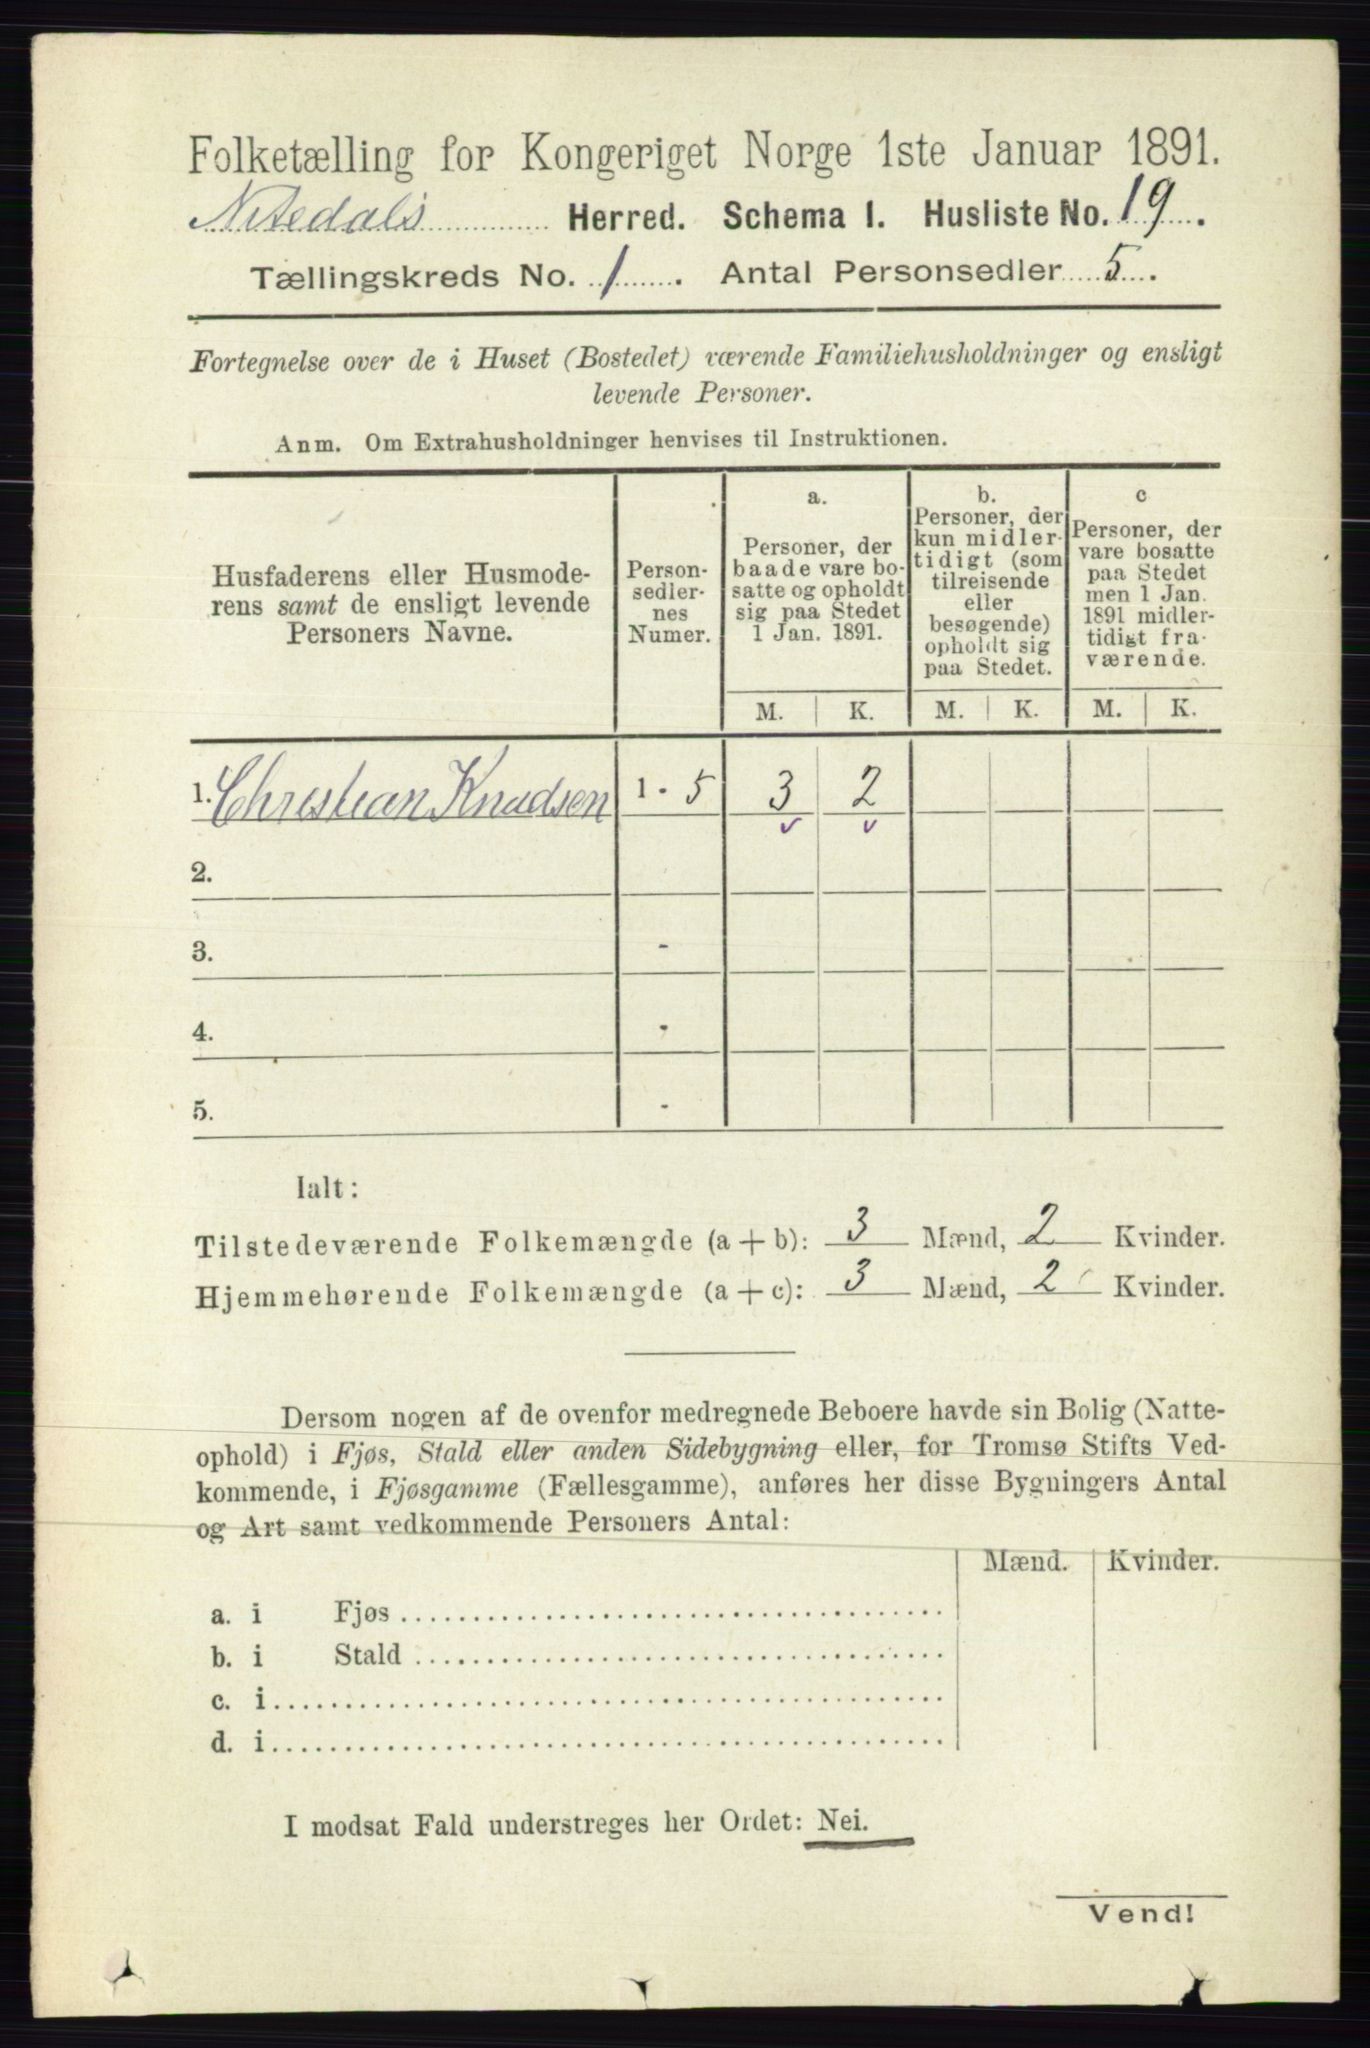 Folketælling for Kongeriget Norge 1ste Januar 1891.
Nitedals Herred. Schema I. Husliste No. 19.
Tællingskreds No. 1. Antal Personsedler 5.
Fortegnelse over de i Huset (Bostedet) værende Familiehusholdninger og ensligt
levende Personer.
Anm. Om Extrahusholdninger henvises til Instruktionen.
Husfaderens eller Husmode-
rens samt de ensligt levende
Personers Navne.
Person-
sedler-
nes
Numer.
a.
Personer, der
baade vare bo-
satte og opholdt
sig paa Stedet
1 Jan. 1891.
b.
Personer, der
kun midler-
tidigt (som
tilreisende
eller
besøgende)
opholdt sig
paa Stedet.
c
Personer, der
vare bosatte
paa Stedet
men 1 Jan.
1891 midler-
tidigt fra-
værende.
M. K. M. K. M. K.
1. Christian Knudsen 1 - 5 3 2
2.
3. -
4. -
5. -
Ialt:
Tilstedeværende Folkemængde (a + b): 3 Mænd, 2 Kvinder.
Hjemmehørende Folkemængde (a + c): 3 Mænd, 2 Kvinder.
Dersom nogen af de ovenfor medregnede Beboere havde sin Bolig (Natte-
ophold) i Fjøs, Stald eller anden Sidebygning eller, for Tromsø Stifts Ved-
kommende, i Fjøsgamme (Fællesgamme), anføres her disse Bygningers Antal
og Art samt vedkommende Personers Antal:
Mænd. Kvinder.
a. i Fjøs
b. i Stald
c. i
d. i
I modsat Fald understreges her Ordet: Nei.
Vend!